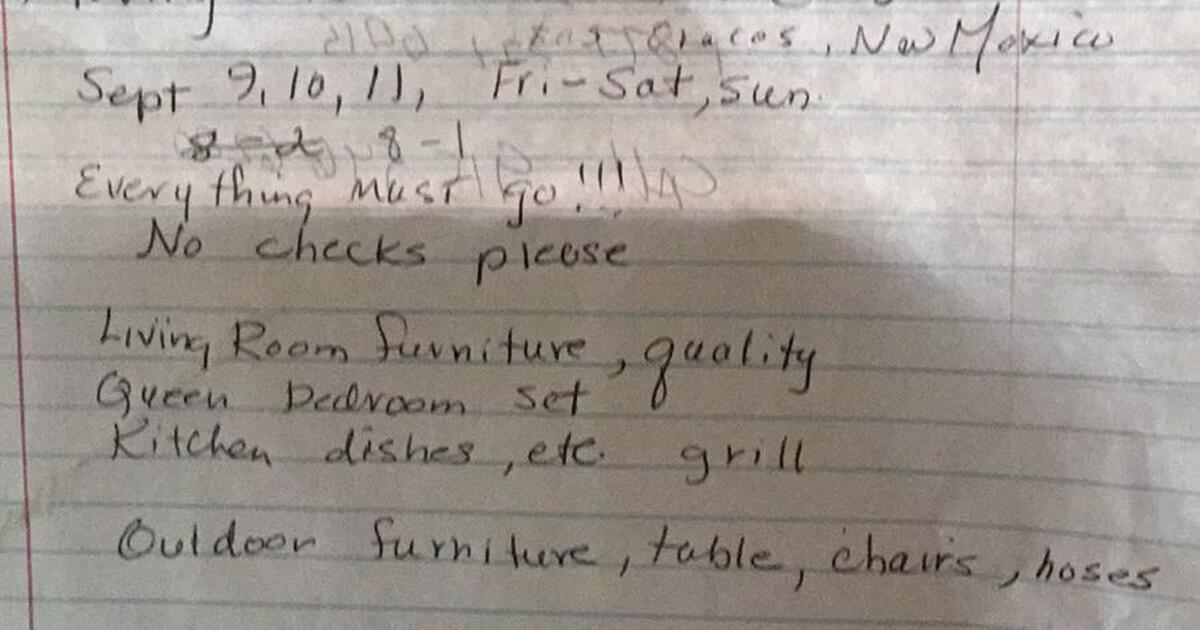 New Mexico
Sept 9, 10, 11, Fri-Sat, Sun.
8-1
Everything must go!!!
No checks please
Living Room furniture, quality
Queen bedroom set
Kitchen dishes, etc. grill
Outdoor furniture, table, chairs, hoses